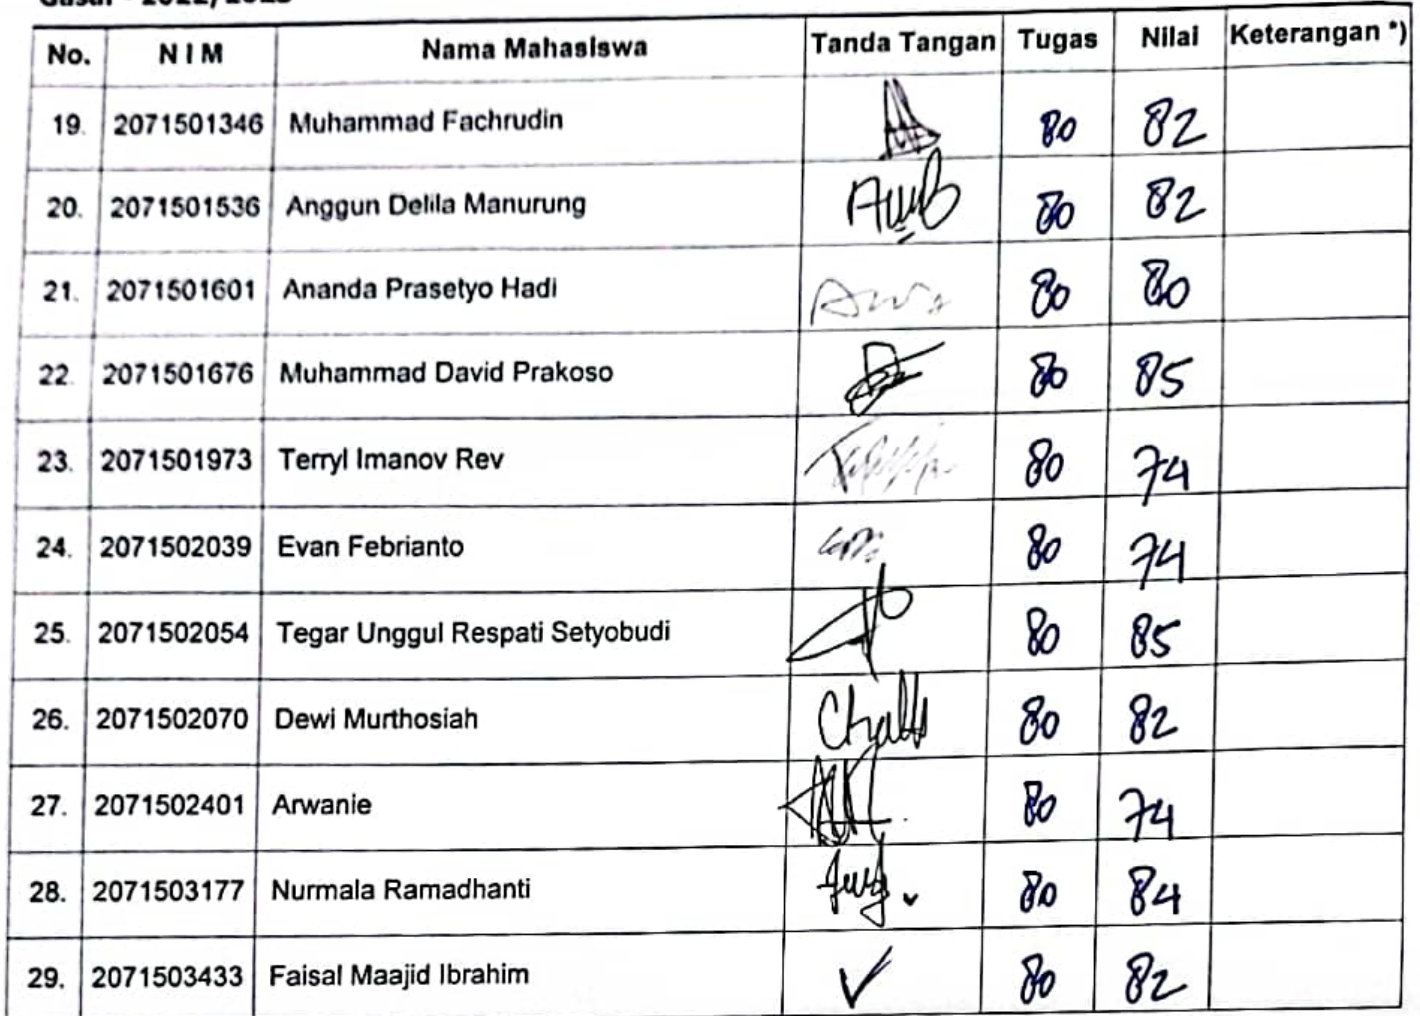 Gasal - 2022/2023
No. N I M Nama Mahasiswa Tanda Tangan Tugas Nilai Keterangan *)
19. 2071501346 Muhammad Fachrudin 80 82
20. 2071501536 Anggun Delila Manurung 80 82
21. 2071501601 Ananda Prasetyo Hadi 80 80
22. 2071501676 Muhammad David Prakoso 80 85
23. 2071501973 Terryl Imanov Rev 80 74
24. 2071502039 Evan Febrianto 80 74
25. 2071502054 Tegar Unggul Respati Setyobudi 80 85
26. 2071502070 Dewi Murthosiah 80 82
27. 2071502401 Arwanie 80 74
28. 2071503177 Nurmala Ramadhanti 80 84
29. 2071503433 Faisal Maajid Ibrahim 80 82